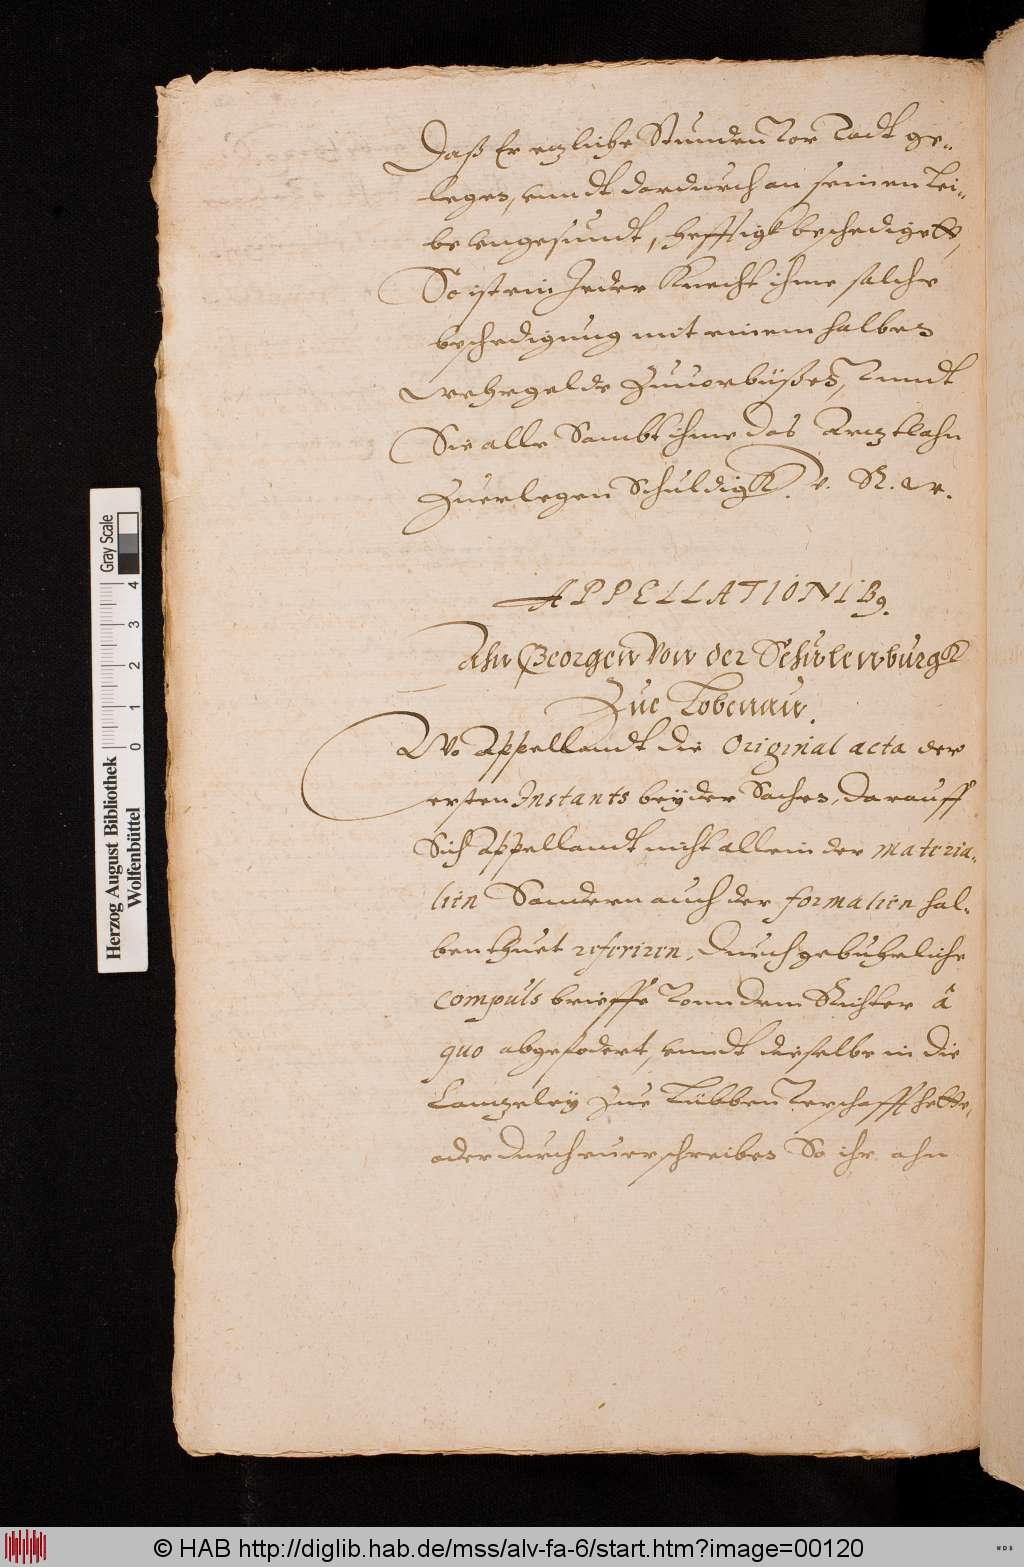 Daß Er etzliche Stunden vor Todt ge-
legen, vnndt dardurch an seinem Lei-
be vngesundt, hefftigk beschedigett,
So ist ein Jeder Knecht ihme solche
beschedigung mit einem halben
wehrgelde Zuuorbüßen, Vnndt
Sie alle Sambt ihme das Arztlohn
Zuerlegen Schuldigk. V. R. W.
APPELLATIONIB9.
Ahn Georgen Von der Schulenburgk
Zue Lobenaw.
Wo Appellandt die Original acta der
ersten Instants beÿ der Sachen, darauff
Sich Appellandt nicht allein der materia-
lien Sondern auch der formalien hal-
ben thuet referiren, durch gebührliche
Compuls brieffe Vonn dem Richter â
quo abgefodert, vnndt dieselbe in die
Cantzeleÿ zue Lübben Verschafft hette,
oder durch euer schreiben So ihr ahn
Herzog August Bibliothek
Wolfenbüttel
0 1 2 3 4
Gray Scale
© HAB http://diglib.hab.de/mss/alv-fa-6/start.htm?image=00120
WDB